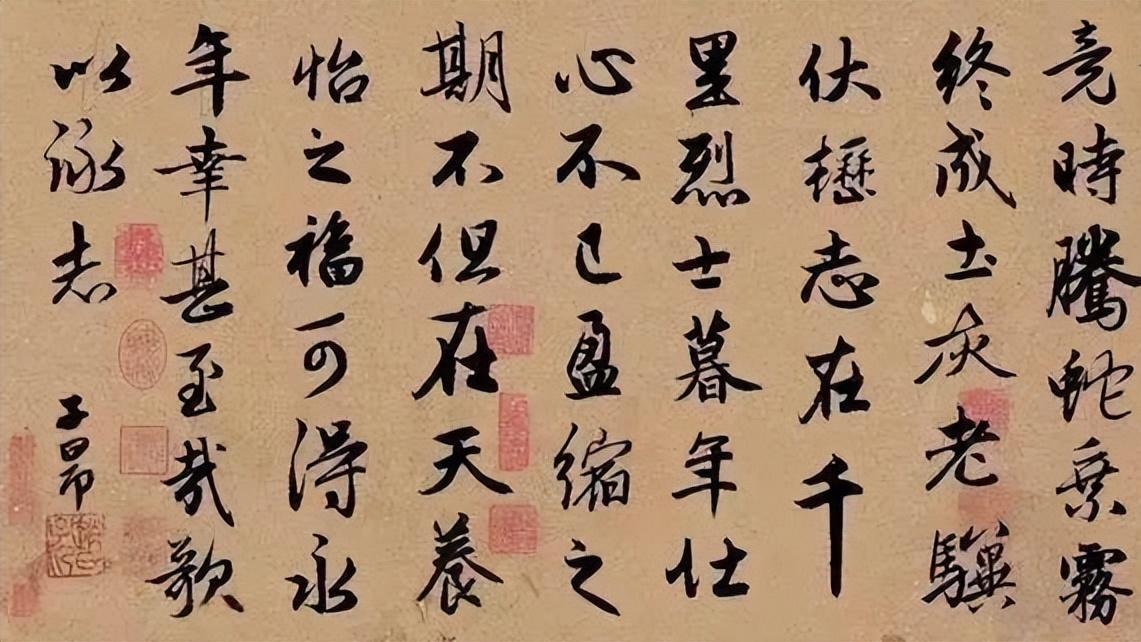 竟時騰蛇乗霧
終成土灰老驥
伏櫪志在千
里烈士暮年仕
心不已盈縮之
期不但在天養
怡之福可得永
年幸甚至哉歌
以詠志
子昂